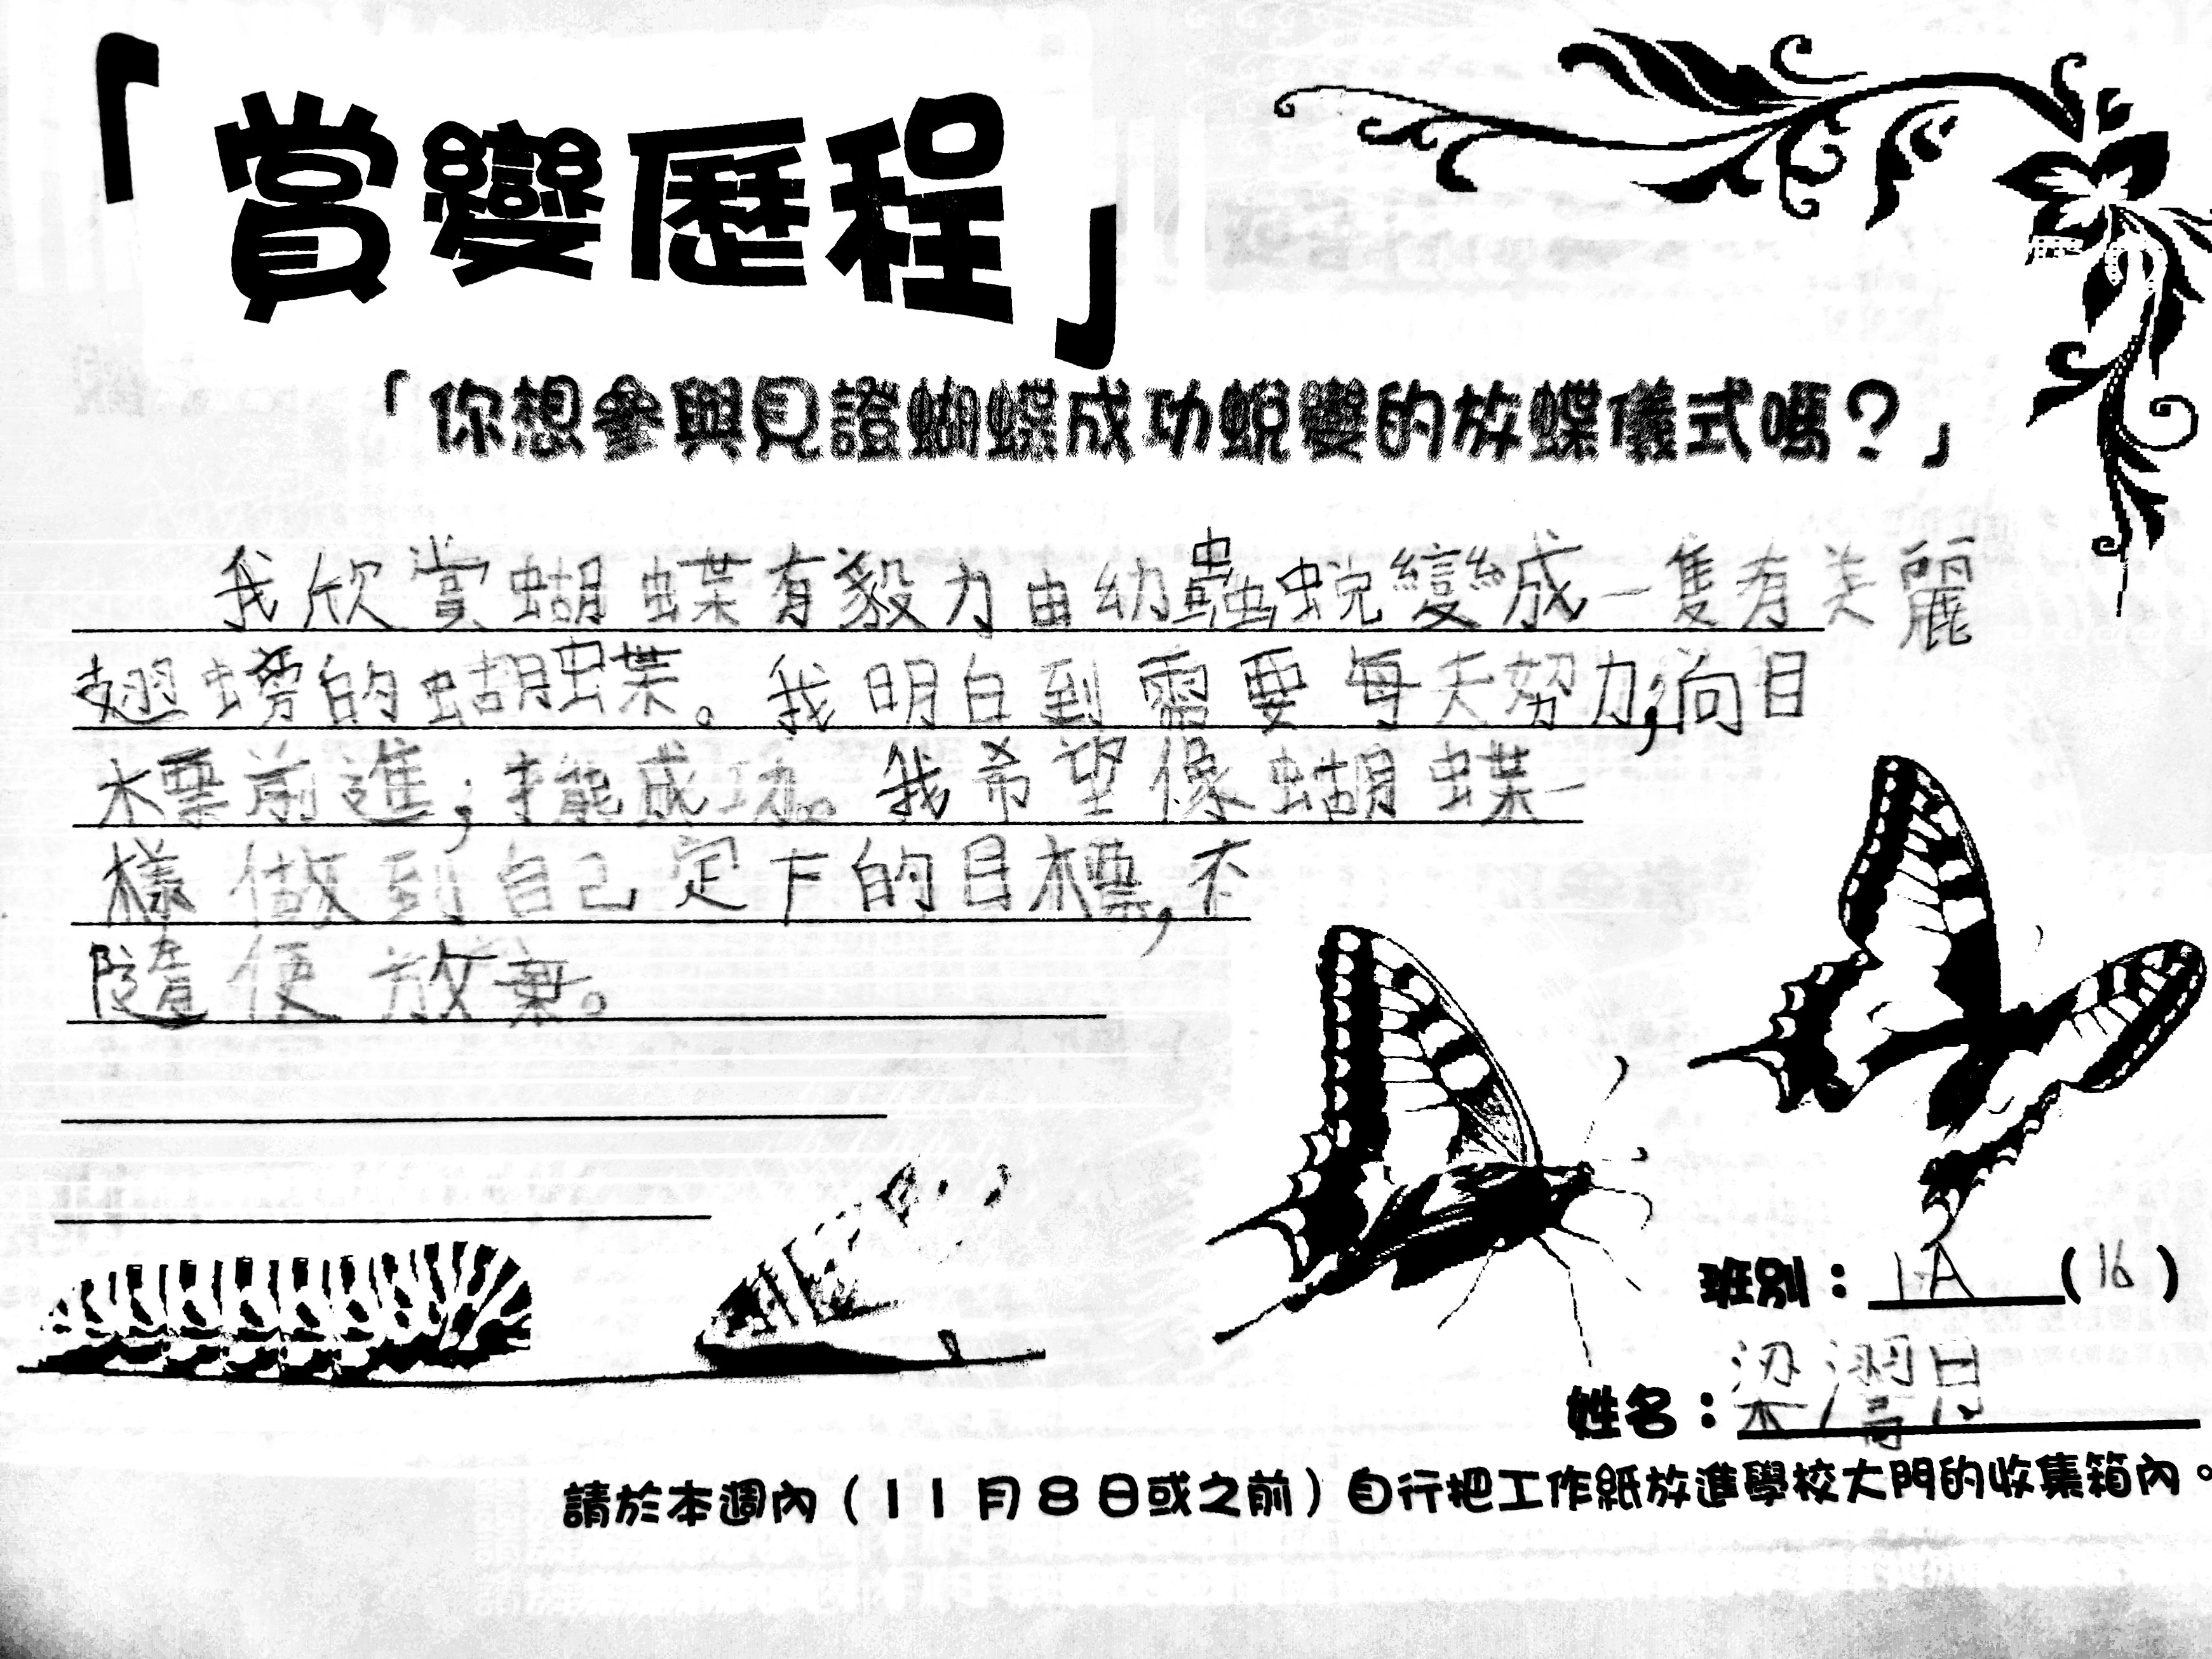 「賞變歷程」
「你想參與見證蝴蝶成功蛻變的放蝶儀式嗎？」
我欣賞蝴蝶有毅力由幼蟲蛻變成一隻有美麗
翅膀的蝴蝶。我明白到需要每天努力，向目
標前進，才能成功。我希望像蝴蝶一
樣做到自己定下的目標，不
隨便放棄。
班別：1A（16）
姓名：梁
請於本週內（11月8日或之前）自行把工作紙放進學校大門的收集箱內。